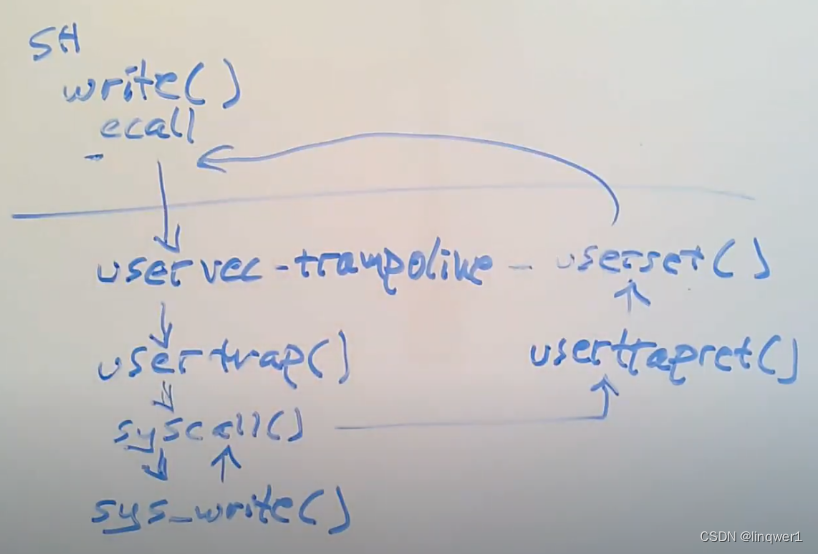 SH
write()
ecall
uservec - trampoline - userret()
usertrap()
usertrapret()
syscall()
sys_write()
CSDN @linqwer1